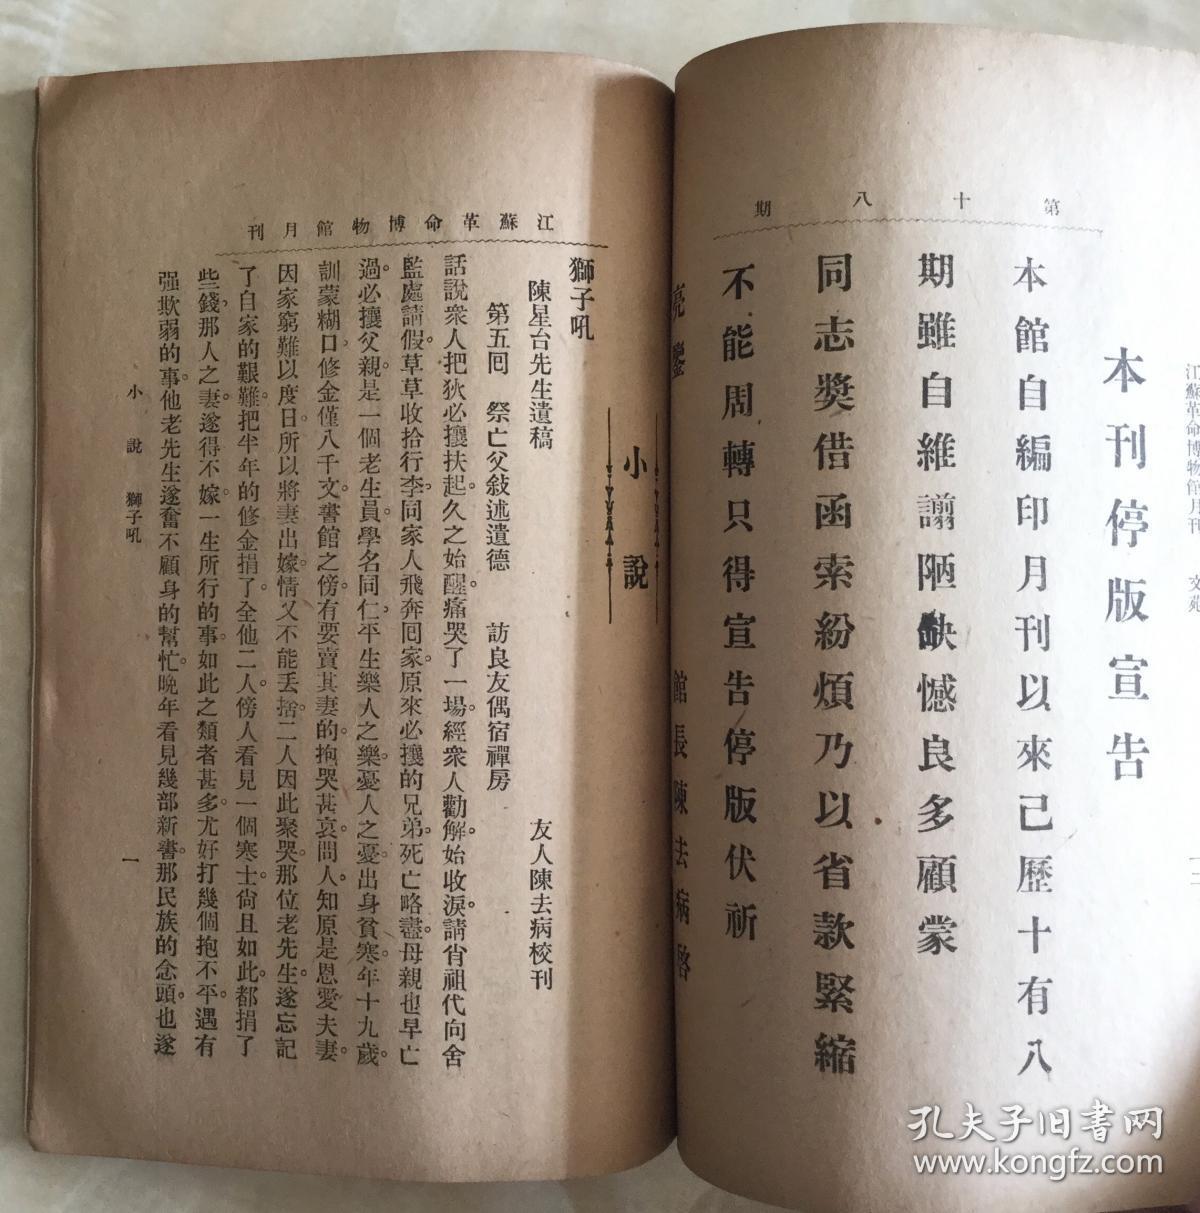 江蘇革命博物館月刊　文苑
一三
第十八期
本刊停版宣告
本館自編印月刊以來已歷十有八
期雖自維謭陋缺憾良多顧蒙
同志奬借函索紛煩乃以省款緊縮
不能周轉只得宣告停版伏祈
亮鑒　館長陳去病啓
江蘇革命博物館月刊
小說
獅子吼
陳星台先生遺稿　友人陳去病校刊
第五囘　祭亡父敍述遺德　訪良友偶宿禪房
話說衆人把狄必攘扶起久之始醒痛哭了一場經衆人勸解始收淚請尙祖代向舍
監處請假草草收拾行李同家人飛奔囘家原來必攘的兄弟死亡略盡母親也早亡
過必攘父親是一個老生員學名同仁平生樂人之樂憂人之憂出身貧寒年十九歲
訓蒙糊口修金僅八千文書館之傍有要賣其妻的抱哭甚哀問人知原是恩愛夫妻
因家窮難以度日所以將妻出嫁情又不能丢捨二人因此聚哭那位老先生遂忘記
了自家的艱難把半年的修金捐了全他二人傍人看見一個寒士尙且如此都捐了
些錢那人之妻遂得不嫁一生所行的事如此之類者甚多尤好打幾個抱不平遇有
强欺弱的事他老先生遂奮不顧身的幫忙晚年看見幾部新書那民族的念頭也遂
小說　獅子吼
一
孔夫子旧书网
www.kongfz.com